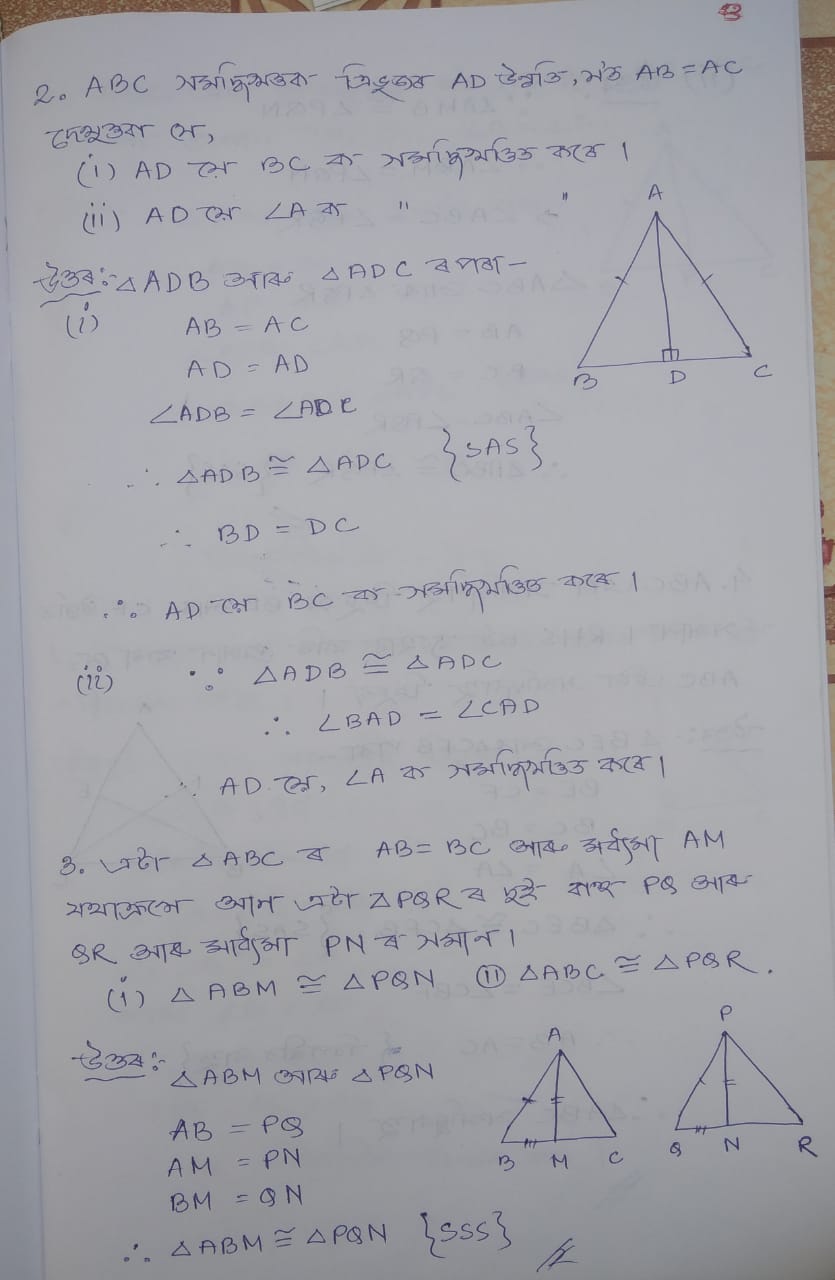 13
2. ABC সমদ্বিবাহুক ত্রিভুজৰ AD উন্নতি, য'ত AB = AC
দেখুওৱা যে,
(i) AD য়ে BC ক সমদ্বিখণ্ডিত কৰে।
(ii) AD য়ে ∠A ক " "
উত্তৰ:- △ADB আৰু △ADC ৰ পৰা-
(i) AB = AC
AD = AD
∠ADB = ∠ADC
∴ △ADB ≅ △ADC {SAS}
∴ BD = DC
∴ AD য়ে BC ক সমদ্বিখণ্ডিত কৰে।
(ii) ∵ △ADB ≅ △ADC
∴ ∠BAD = ∠CAD
∴ AD য়ে, ∠A ক সমদ্বিখণ্ডিত কৰে।
A
B D C
3. এটা △ABC ৰ AB = BC আৰু মধ্যমা AM
যথাক্ৰমে আন এটা △PQR ৰ দুই বাহু PQ আৰু
QR আৰু মধ্যমা PN ৰ সমান।
(i) △ABM ≅ △PQN (ii) △ABC ≅ △PQR.
উত্তৰ:- △ABM আৰু △PQN
AB = PQ
AM = PN
BM = QN
∴ △ABM ≅ △PQN {SSS}
A
B M C
P
Q N R